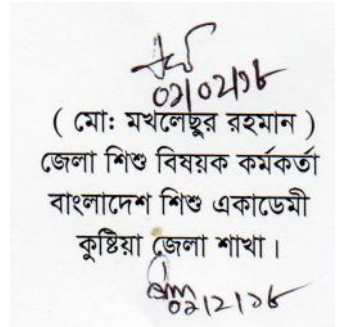 ০১/০২/১৮
( মো: মখলেছুর রহমান )
জেলা শিশু বিষয়ক কর্মকর্তা
বাংলাদেশ শিশু একাডেমী
কুষ্টিয়া জেলা শাখা।